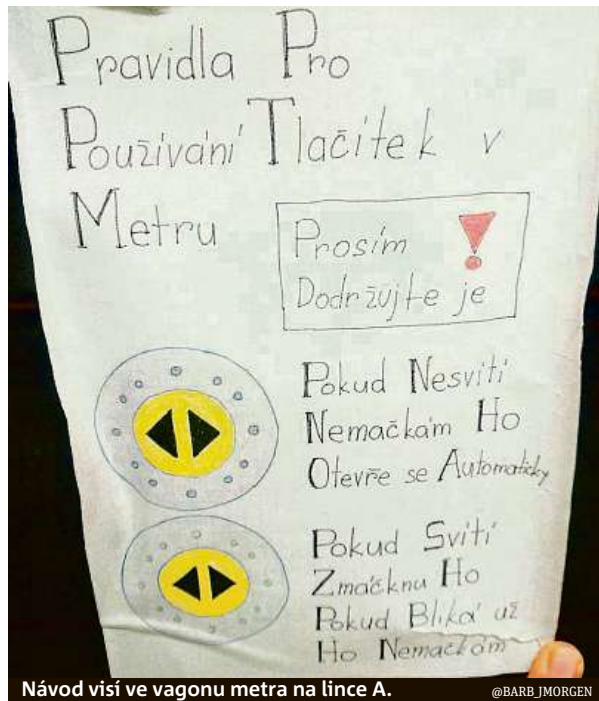 Pravidla Pro
Používání Tlačítek v
Metru
Prosím
Dodržujte je
Pokud Nesvítí
Nemačkám Ho
Otevře se Automaticky
Pokud Svítí
Zmáčknu Ho
Pokud Bliká už
Ho Nemačkám
Návod visí ve vagonu metra na lince A.
@BARB_JMORGEN